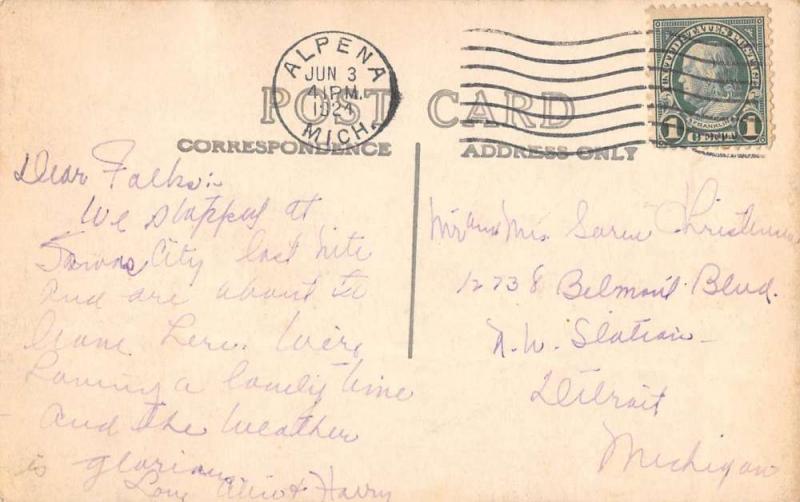 ALPENA
JUN 3
4 PM
1924
MICH.
UNITED STATES POSTAGE
FRANKLIN
1 CENT 1
POST CARD
CORRESPONDENCE
ADDRESS ONLY
Dear Folks:
We stopped at
Tawas City last nite
and are about to
leave here. We're
having a lovely time
and the weather
is glorious.
Love Alice & Harry
Mr and Mrs. Soren Christensen
12738 Belmont Blvd.
N.W. Station
Detroit
Michigan